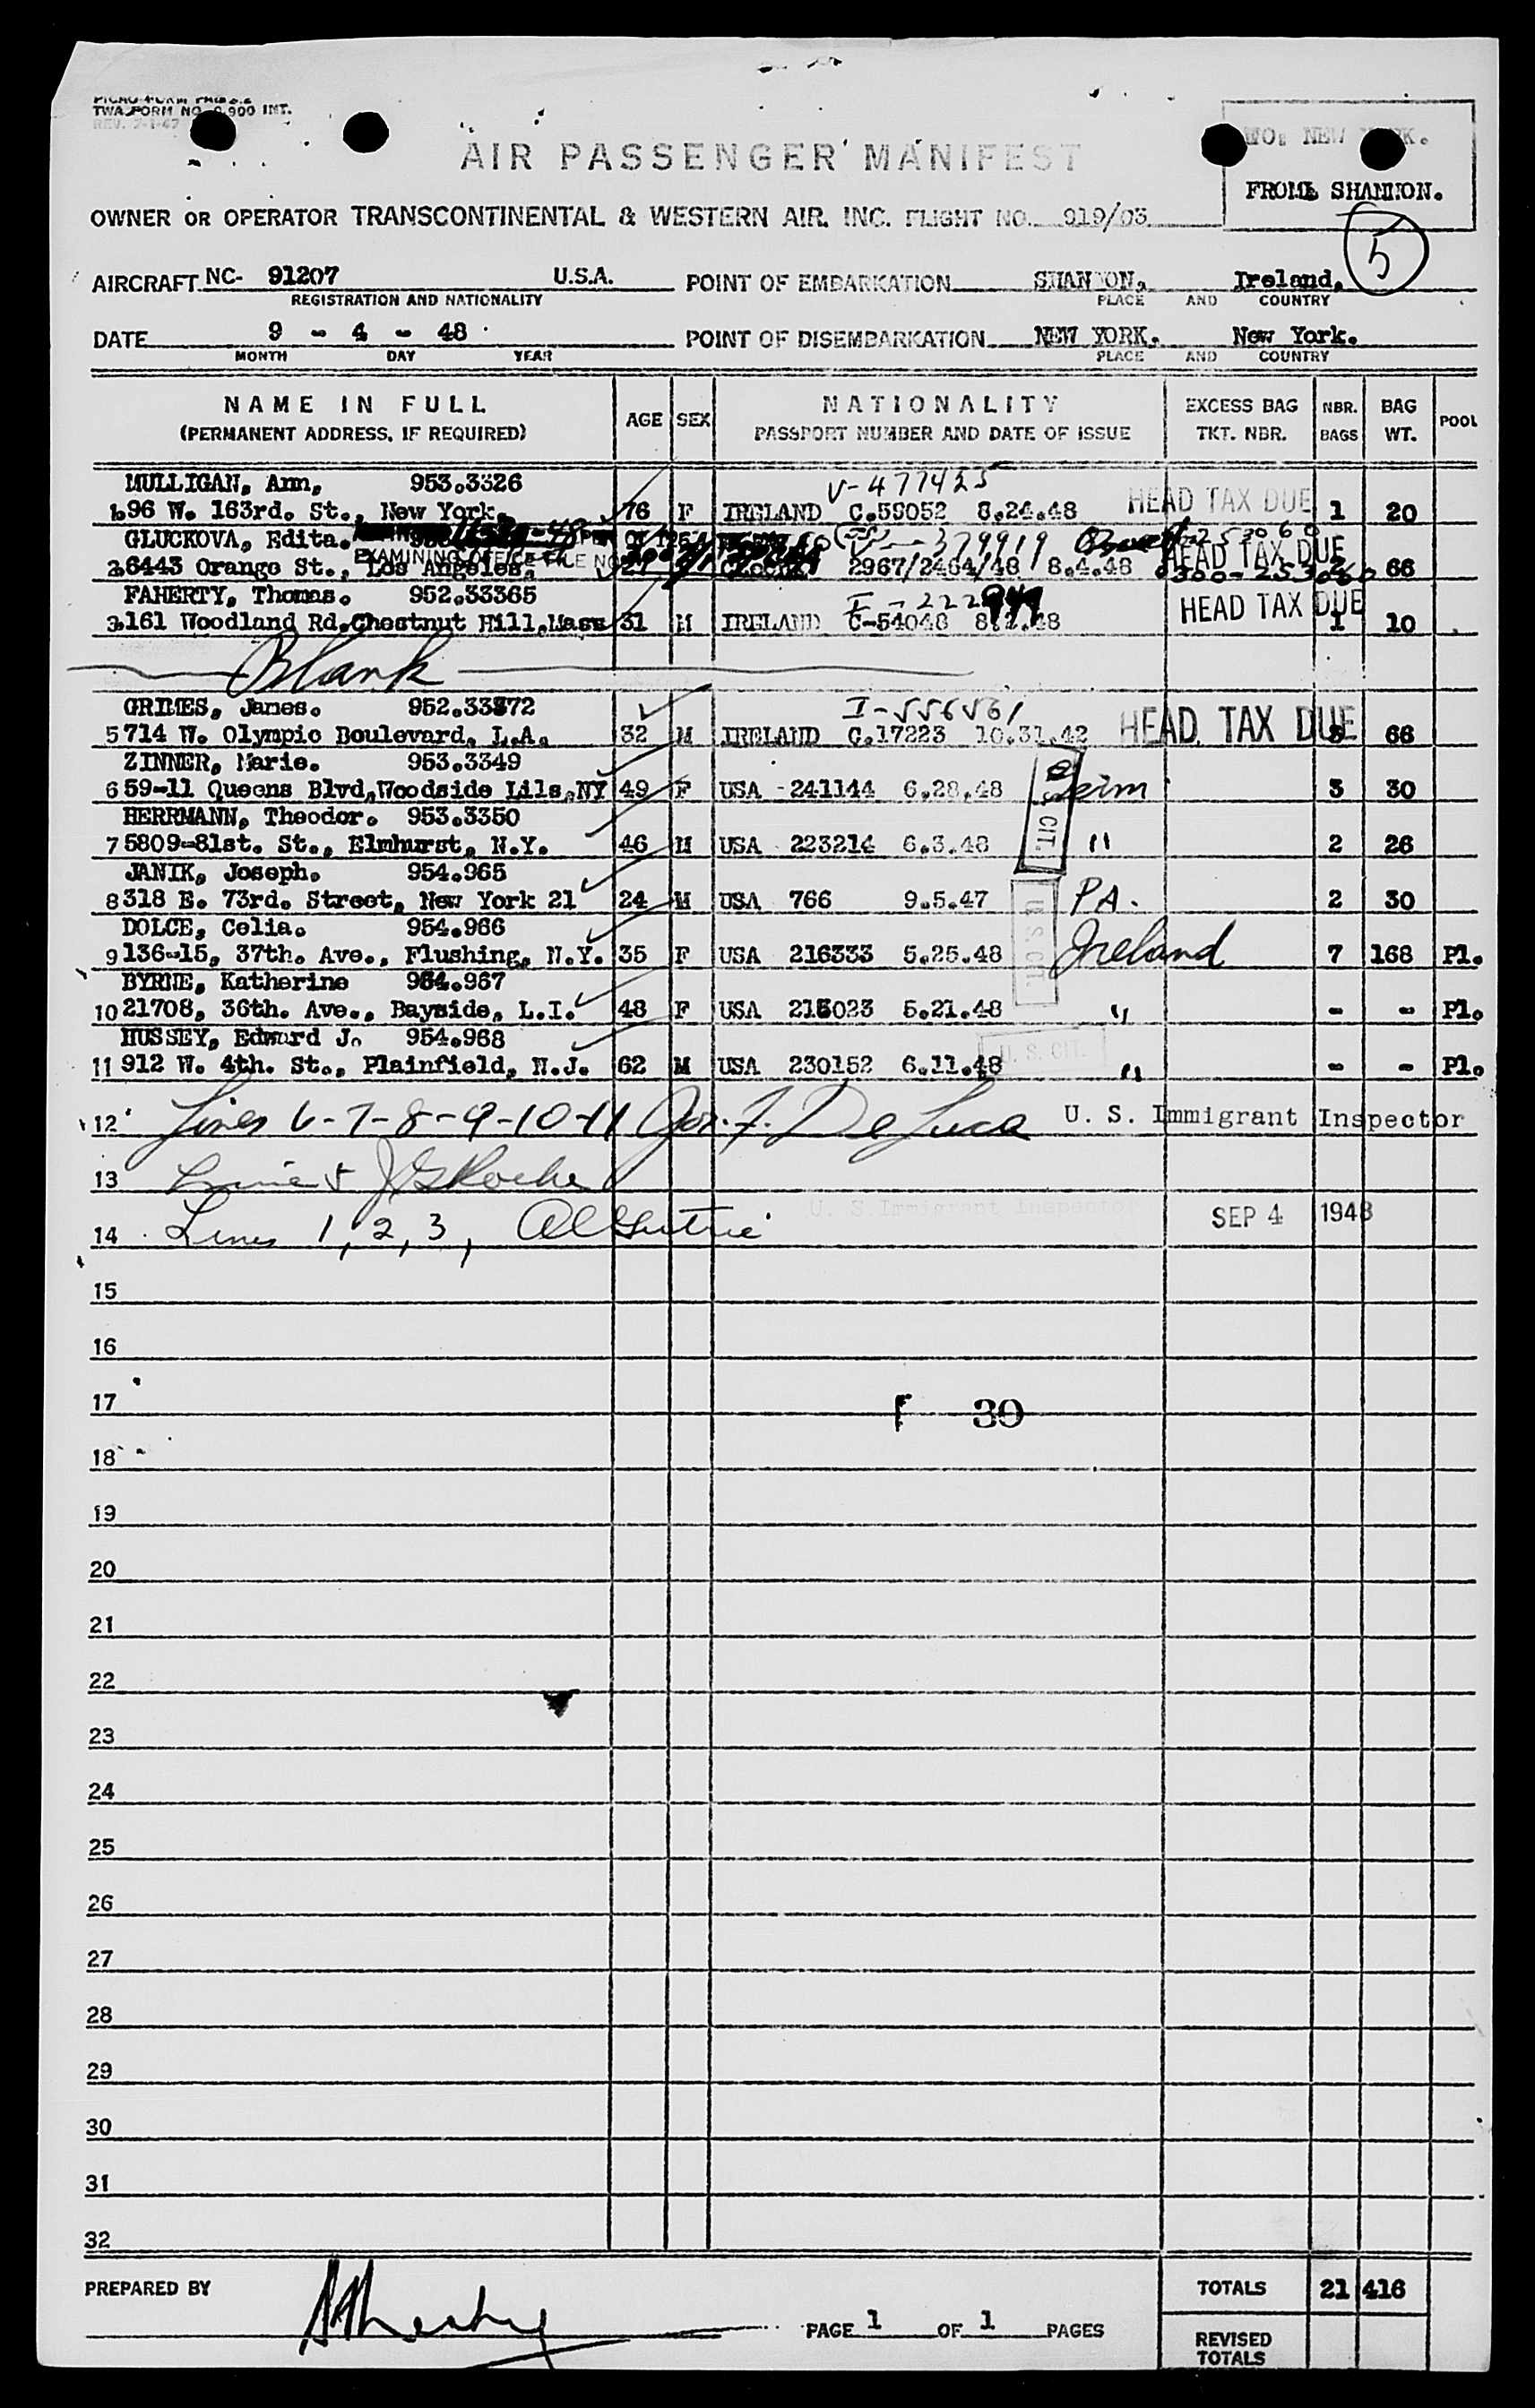 TWA FORM NO. 900 INT.
REV. 7-1-47
TO: NEW
AIR PASSENGER MANIFEST
FROM: SHANNON.
OWNER OR OPERATOR TRANSCONTINENTAL & WESTERN AIR. INC. FLIGHT NO. 919/03
5
AIRCRAFT NC- 91207 U.S.A. POINT OF EMBARKATION SHANNON, Ireland.
REGISTRATION AND NATIONALITY PLACE AND COUNTRY
DATE 9 - 4 - 48 POINT OF DISEMBARKATION NEW YORK. New York.
MONTH DAY YEAR PLACE AND COUNTRY
NAME IN FULL AGE SEX NATIONALITY EXCESS BAG NBR. BAG POOL
(PERMANENT ADDRESS, IF REQUIRED) PASSPORT NUMBER AND DATE OF ISSUE TKT. NBR. BAGS WT.
MULLIGAN, Ann, 953.3326 V-477425
1.96 W. 163rd. St., New York. 76 F IRELAND C.59052 8.24.48 HEAD TAX DUE 1 20
GLUCKOVA, Edita. V-379919
EXAMINING OFFICE FILE NO
2.6443 Orange St., Los Angeles. 2967/2464/48 8.4.48 HEAD TAX DUE 66
0300-253060
FAHERTY, Thomas. 952.33365 I-222
3.161 Woodland Rd.Chestnut Hill.Mass 31 M IRELAND C-54048 HEAD TAX DUE 1 10
Blank
GRIMES, James. 952.33372 I-556561
5 714 W. Olympic Boulevard, L.A. 32 M IRELAND C.17223 10.31.42 HEAD TAX DUE 66
ZINNER, Marie. 953.3349
6 59-11 Queens Blvd,Woodside Lils,NY 49 F USA -241144 6.28.48 3 30
HERRMANN, Theodor. 953.3350
7 5809-81st. St., Elmhurst, N.Y. 46 M USA 223214 6.3.48 CIT. " 2 26
JANIK, Joseph. 954.965
8 318 E. 73rd. Street, New York 21 24 M USA 766 9.5.47 PA. 2 30
DOLCE, Celia. 954.966
9 136-15, 37th. Ave., Flushing, N.Y. 35 F USA 216333 5.25.48 U. S. CIT. Ireland 7 168 Pl.
BYRNE, Katherine 954.967
10 21708, 36th. Ave., Bayside, L.I. 48 F USA 215023 5.21.48 " - - Pl.
HUSSEY, Edward J. 954.968
11 912 W. 4th. St., Plainfield, N.J. 62 M USA 230152 6.11.48 U. S. CIT. " - - Pl.
12 Lines 6-7-8-9-10-11 Jos. F. De Luca U. S. Immigrant Inspector
13 Line 5 J G Roche
U. S. Immigrant Inspector
14 Lines 1, 2, 3, SEP 4 1948
15
16
17 30
18
19
20
21
22
23
24
25
26
27
28
29
30
31
32
PREPARED BY TOTALS 21 416
PAGE 1 OF 1 PAGES
REVISED
TOTALS